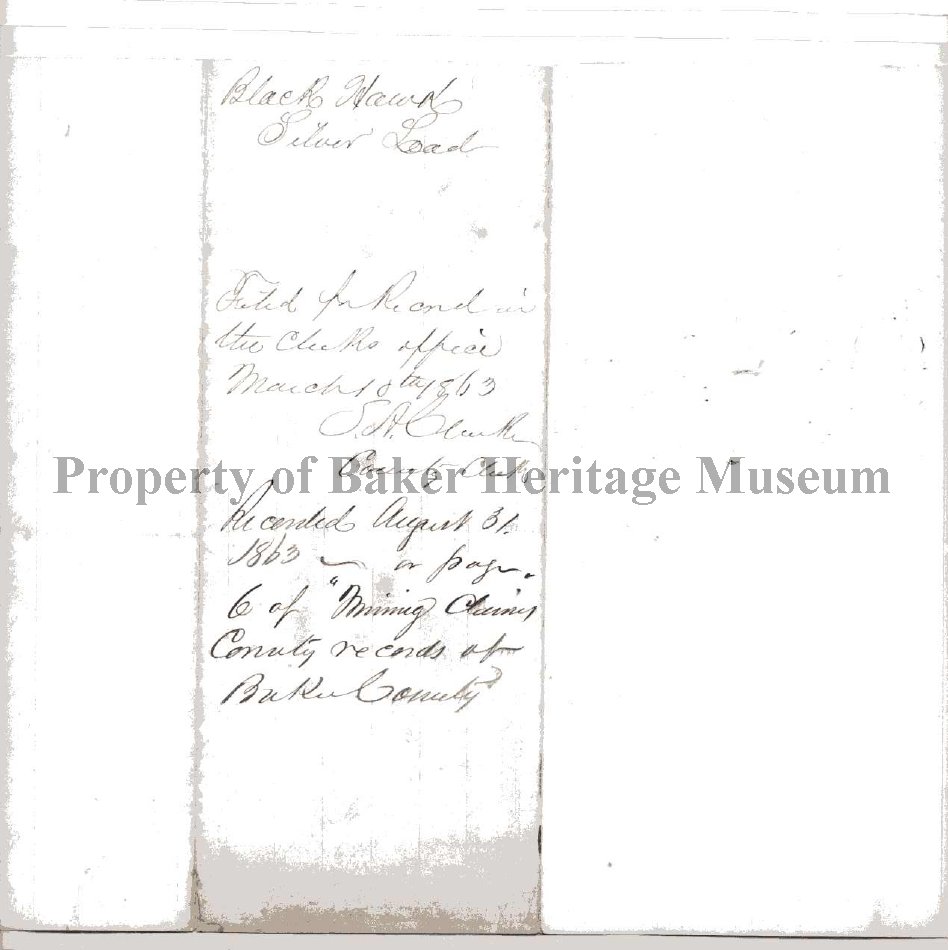 Black Hawk
Silver Lead
Filed for Record in
the Clerks office
March 18th 1863
S.A. Clarke
County Clerk
Property of Baker Heritage Museum
Recorded August 31.
1863 — on page
6 of "Mining Claims
County records of
Baker County"